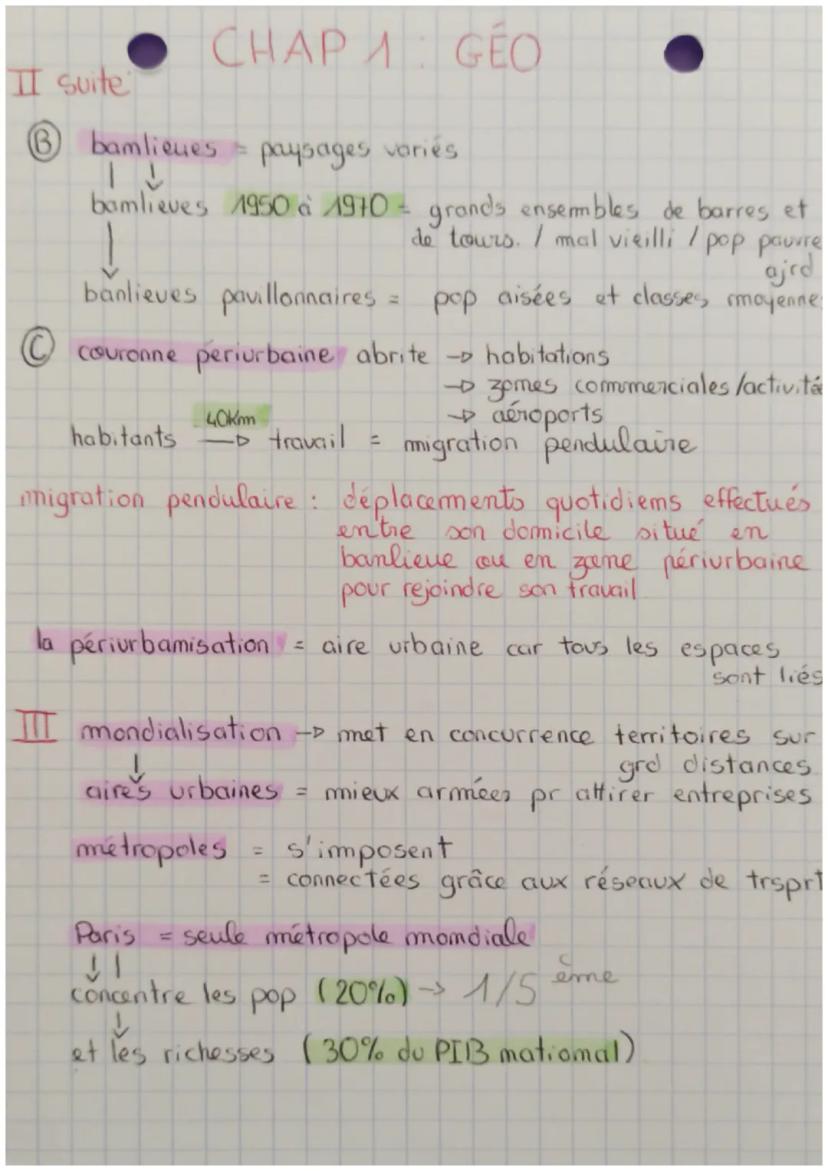 CHAP 1 : GÉO
II suite
B banlieues = paysages variés
banlieues 1950 à 1970 = grands ensembles de barres et
de tours. / mal vieilli / pop pauvre
ajrd
banlieues pavillonnaires = pop aisées et classes moyenne
C couronne periurbaine abrite → habitations
→ zones commerciales/activité
→ aéroports
40km
habitants → travail = migration pendulaire
migration pendulaire : déplacements quotidiens effectués
entre son domicile situé en
banlieue ou en zone périurbaine
pour rejoindre son travail
la périurbanisation = aire urbaine car tous les espaces
sont liés
III mondialisation → met en concurrence territoires sur
grd distances
aires urbaines = mieux armées pr attirer entreprises
métropoles = s'imposent
= connectées grâce aux réseaux de trsprt
Paris = seule métropole mondiale
concentre les pop (20%) → 1/5 ème
et les richesses (30% du PIB national)